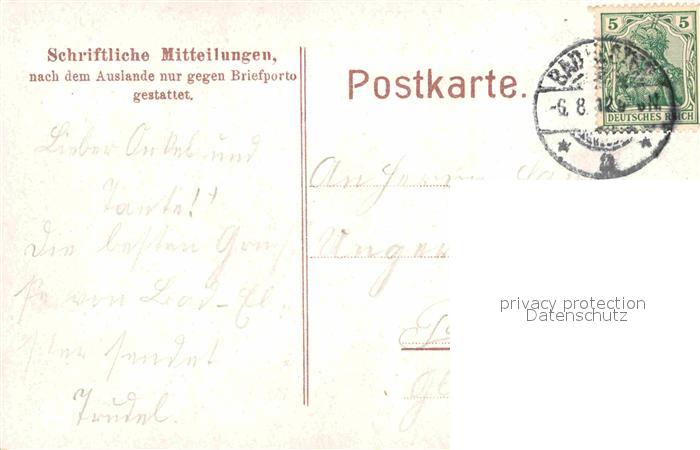 Schriftliche Mitteilungen,
nach dem Auslande nur gegen Briefporto
gestattet.
Postkarte.
5 5
DEUTSCHES REICH
BAD
-6. 8. 12.
a
Lieber Onkel und
Tante!
Die besten Grüs-
se von Bad-El-
ster sendet
Trudel.
An Herrn
Unger
privacy protection
Datenschutz